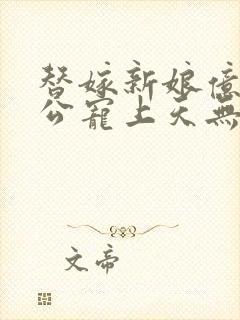 替嫁新娘億
公寵上天無
文帝